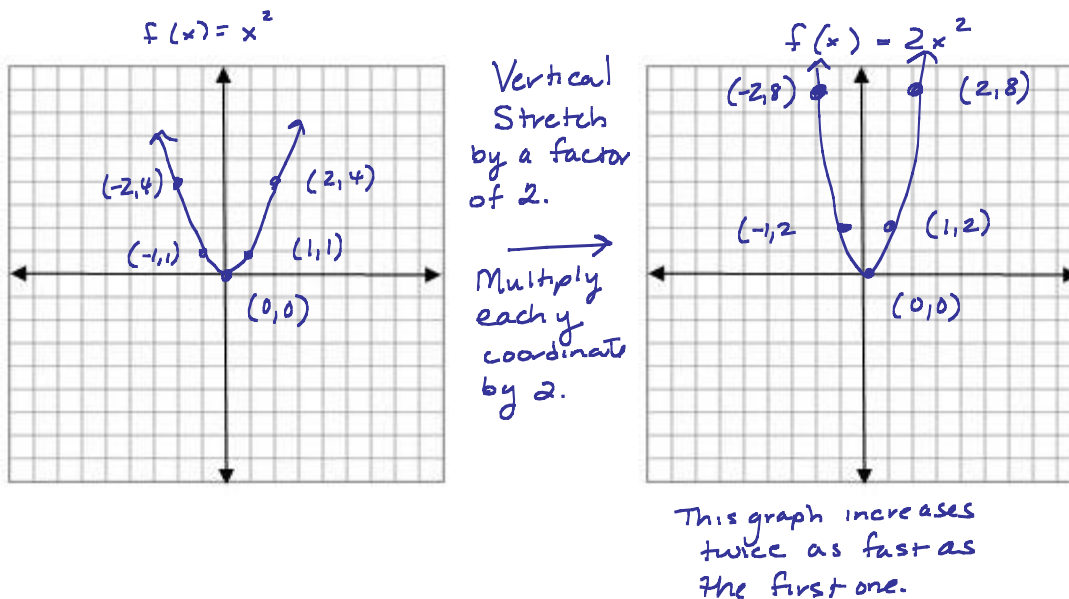 f(x) = x²
(-2,4)
(2,4)
(-1,1)
(1,1)
(0,0)
Vertical
Stretch
by a factor
of 2.
Multiply
each y
coordinate
by 2.
f(x) = 2x²
(-2,8)
(2,8)
(-1,2
(1,2)
(0,0)
This graph increases
twice as fast as
the first one.